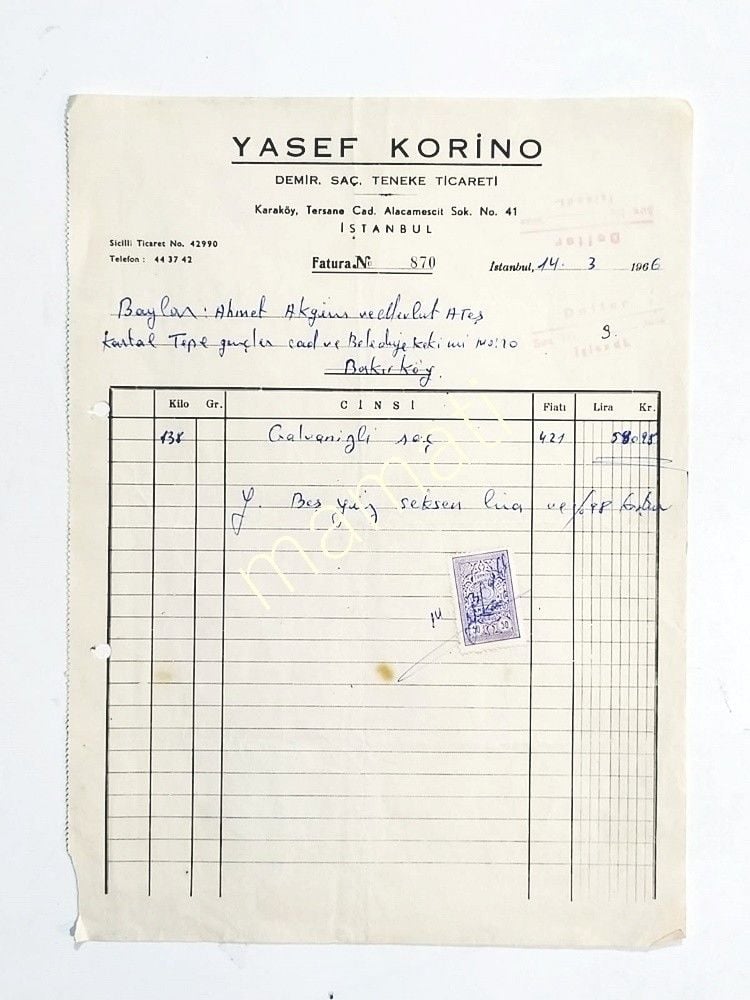 YASEF KORİNO
DEMİR. SAÇ. TENEKE TİCARETİ
Karaköy, Tersane Cad. Alacamescit Sok. No. 41
İSTANBUL
Sicilli Ticaret No. 42990
Telefon : 44 37 42
Fatura No 870
Istanbul, 14. 3 1966
Baylar : Ahmet Akgüns ve Mevlut Ateş
Kartal Tepe gençler cad ve Belediye No: 10
9.
Bakırköy.
Kilo Gr. CİNSİ Fiatı Lira Kr.
138 Galvanizli saç 421 580 98
Y. Beş yüz seksen lira ve %98
mamati
14